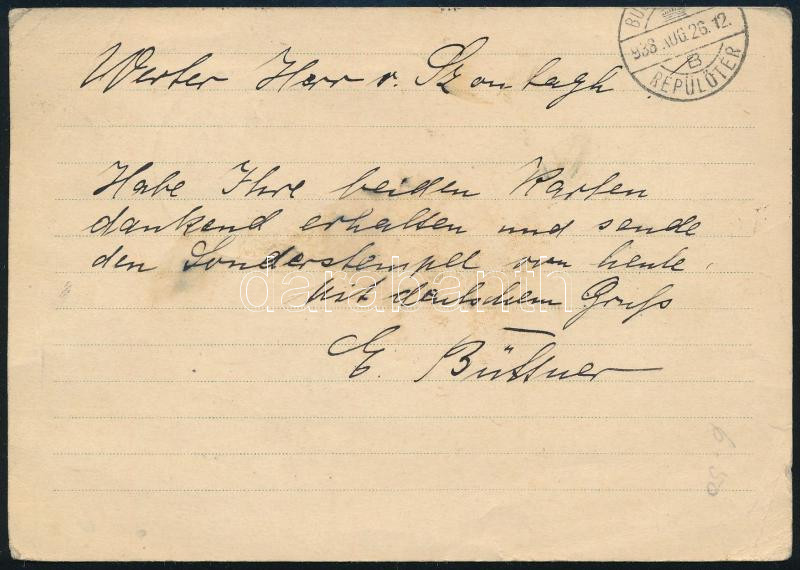 Werter Herr v. Szontagh
BU
938 AUG. 26. 12.
B
REPÜLŐTÉR
Habe Ihre beiden Karten
dankend erhalten und sende
den Sonderstempel von heute.
Mit deutschem Gruß
E. Büttner
darabanth
6.50